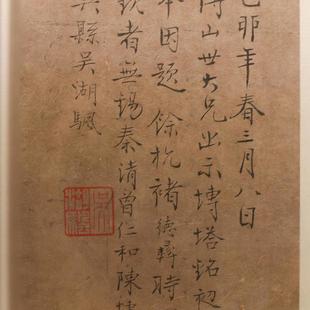 己卯年春三月八日
博山世大兄出示塼塔銘初
本因題 餘杭褚德彝時
觀者無錫秦清曾仁和陳
吳縣吳湖颿